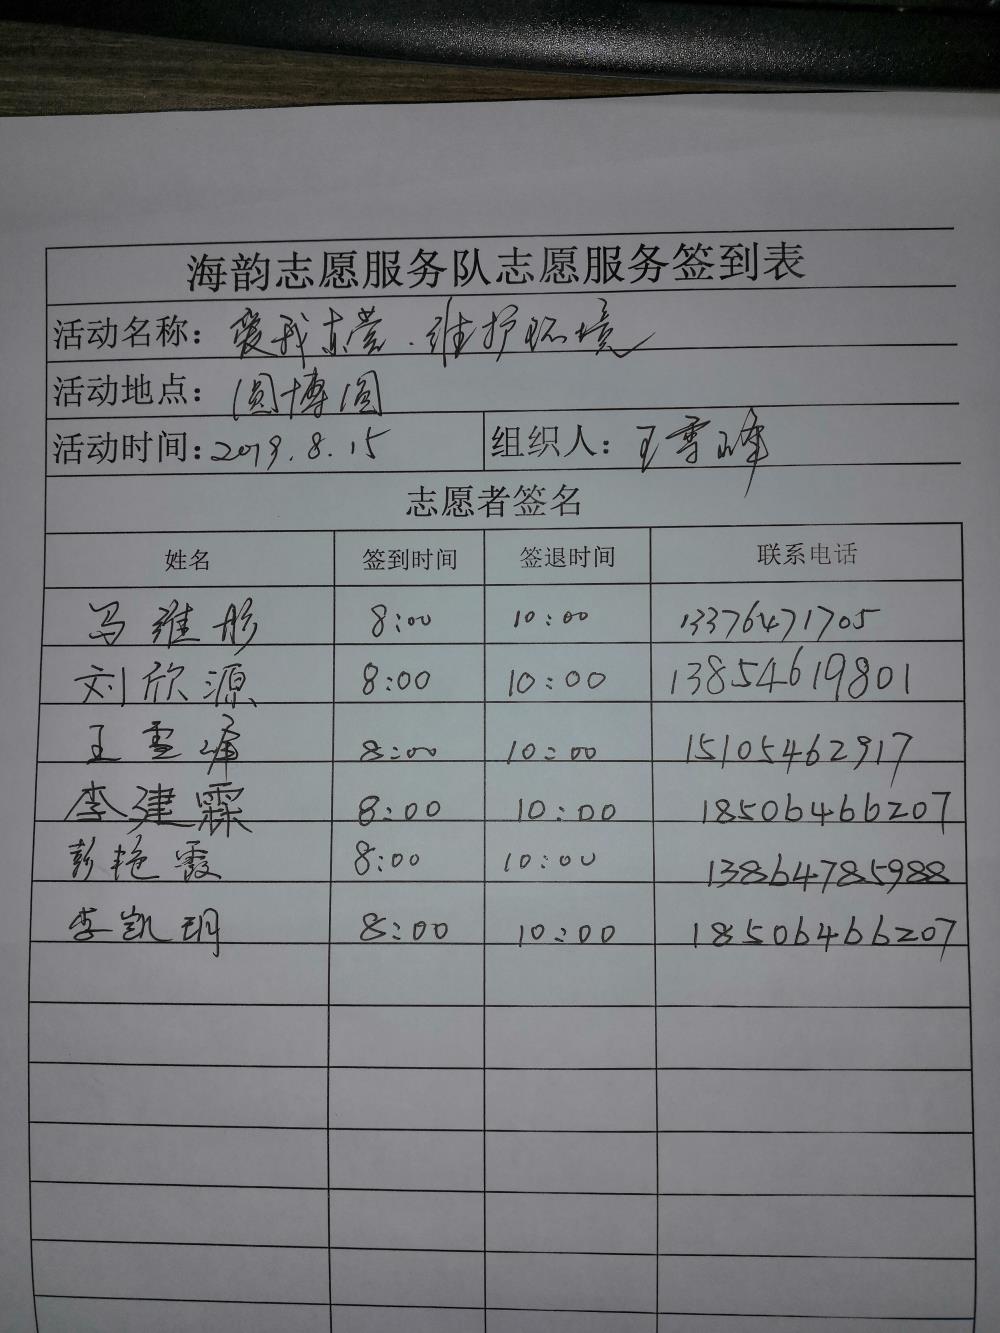 海韵志愿服务队志愿服务签到表
活动名称：爱我东营.维护环境
活动地点：圆博圆
活动时间：2019.8.15 组织人：王雪峰
志愿者签名
姓名 签到时间 签退时间 联系电话
马维彤 8:00 10:00 13376471705
刘欣源 8:00 10:00 13854619801
王雪峰 8:00 10:00 15105462917
李建霖 8:00 10:00 18506466207
彭艳霞 8:00 10:00 13864785988
李凯玥 8:00 10:00 18506466207